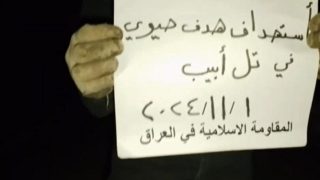 أستهداف هدف حيوي
في تل أبيب
٢٠٢٤/١١/١
المقاومة الاسلامية في العراق